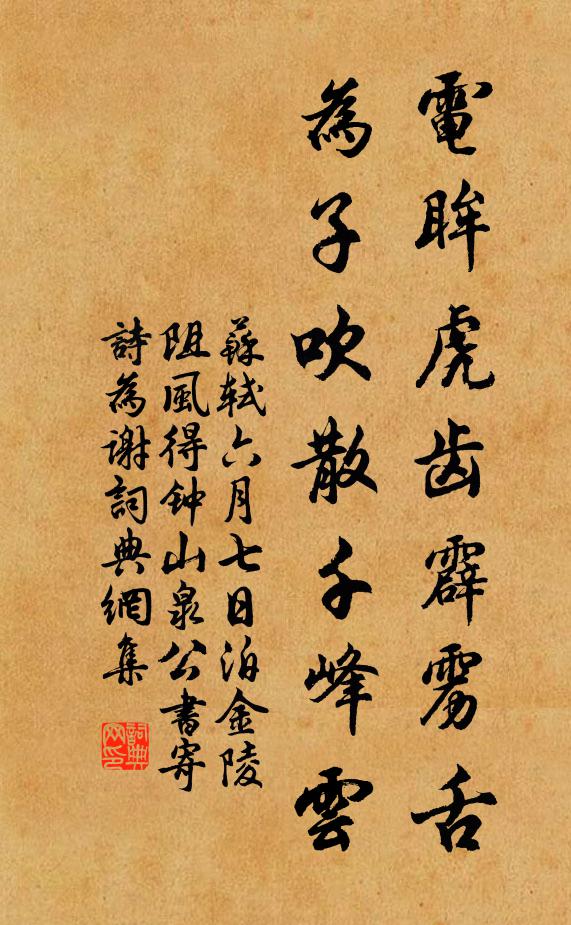 電眸虎齿霹雳舌
為子吹散千峰雲
蘇轼六月七日泊金陵
阻風得钟山泉公書寄
詩為謝詞典網集
詞典网印